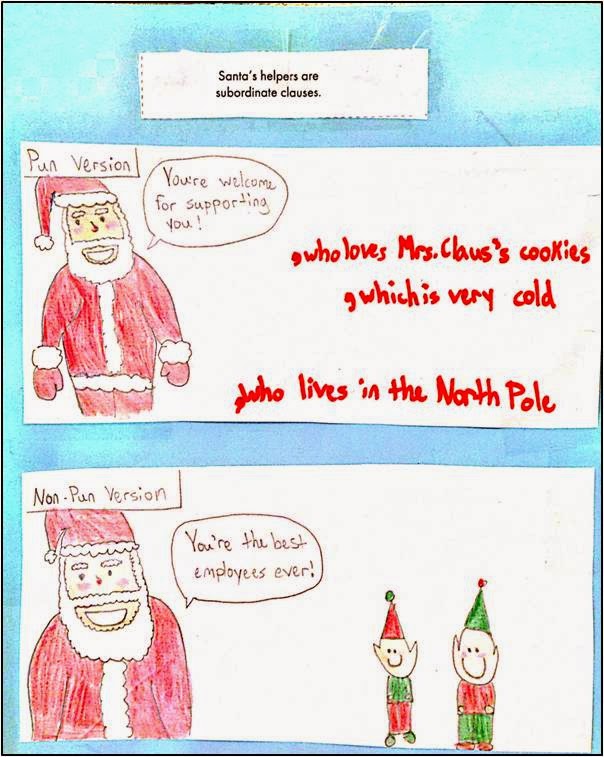 Santa's helpers are
subordinate clauses.
Pun Version
You're welcome
for supporting
you!
,who loves Mrs. Claus's cookies
,which is very cold
,who lives in the North Pole
Non-Pun Version
You're the best
employees ever!